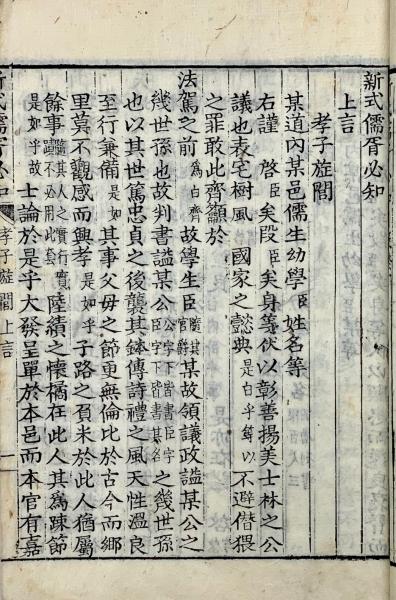 新式儒胥必知
上言
孝子旌閭
某道內某邑儒生幼學臣姓名等
右謹 啓臣矣段臣矣身等伏以彰善揚美士林之公
議也表宅樹風 國家之懿典是白乎等以不避僭猥
之罪敢此齊籲於
法駕之前爲白齊故學生臣隨其官爵某故領議政謚某公之
幾世孫也故判書謚某公臣字下皆書臣字臣字下皆書其名之幾世孫
也以其世篤忠貞之後襲其鉢傳詩禮之風天性溫良
至行兼備是如其事父母之節更無倫比於古今而鄕
里莫不觀感而興孝是如乎子路之負米於此人猶屬
餘事隨其人之實行實蹟不必用此套陸績之懷橘在此人其爲疎節
是如乎故士論於是乎大發呈單於本邑而本官有嘉
新式儒胥必知 孝子旌閭上言 一